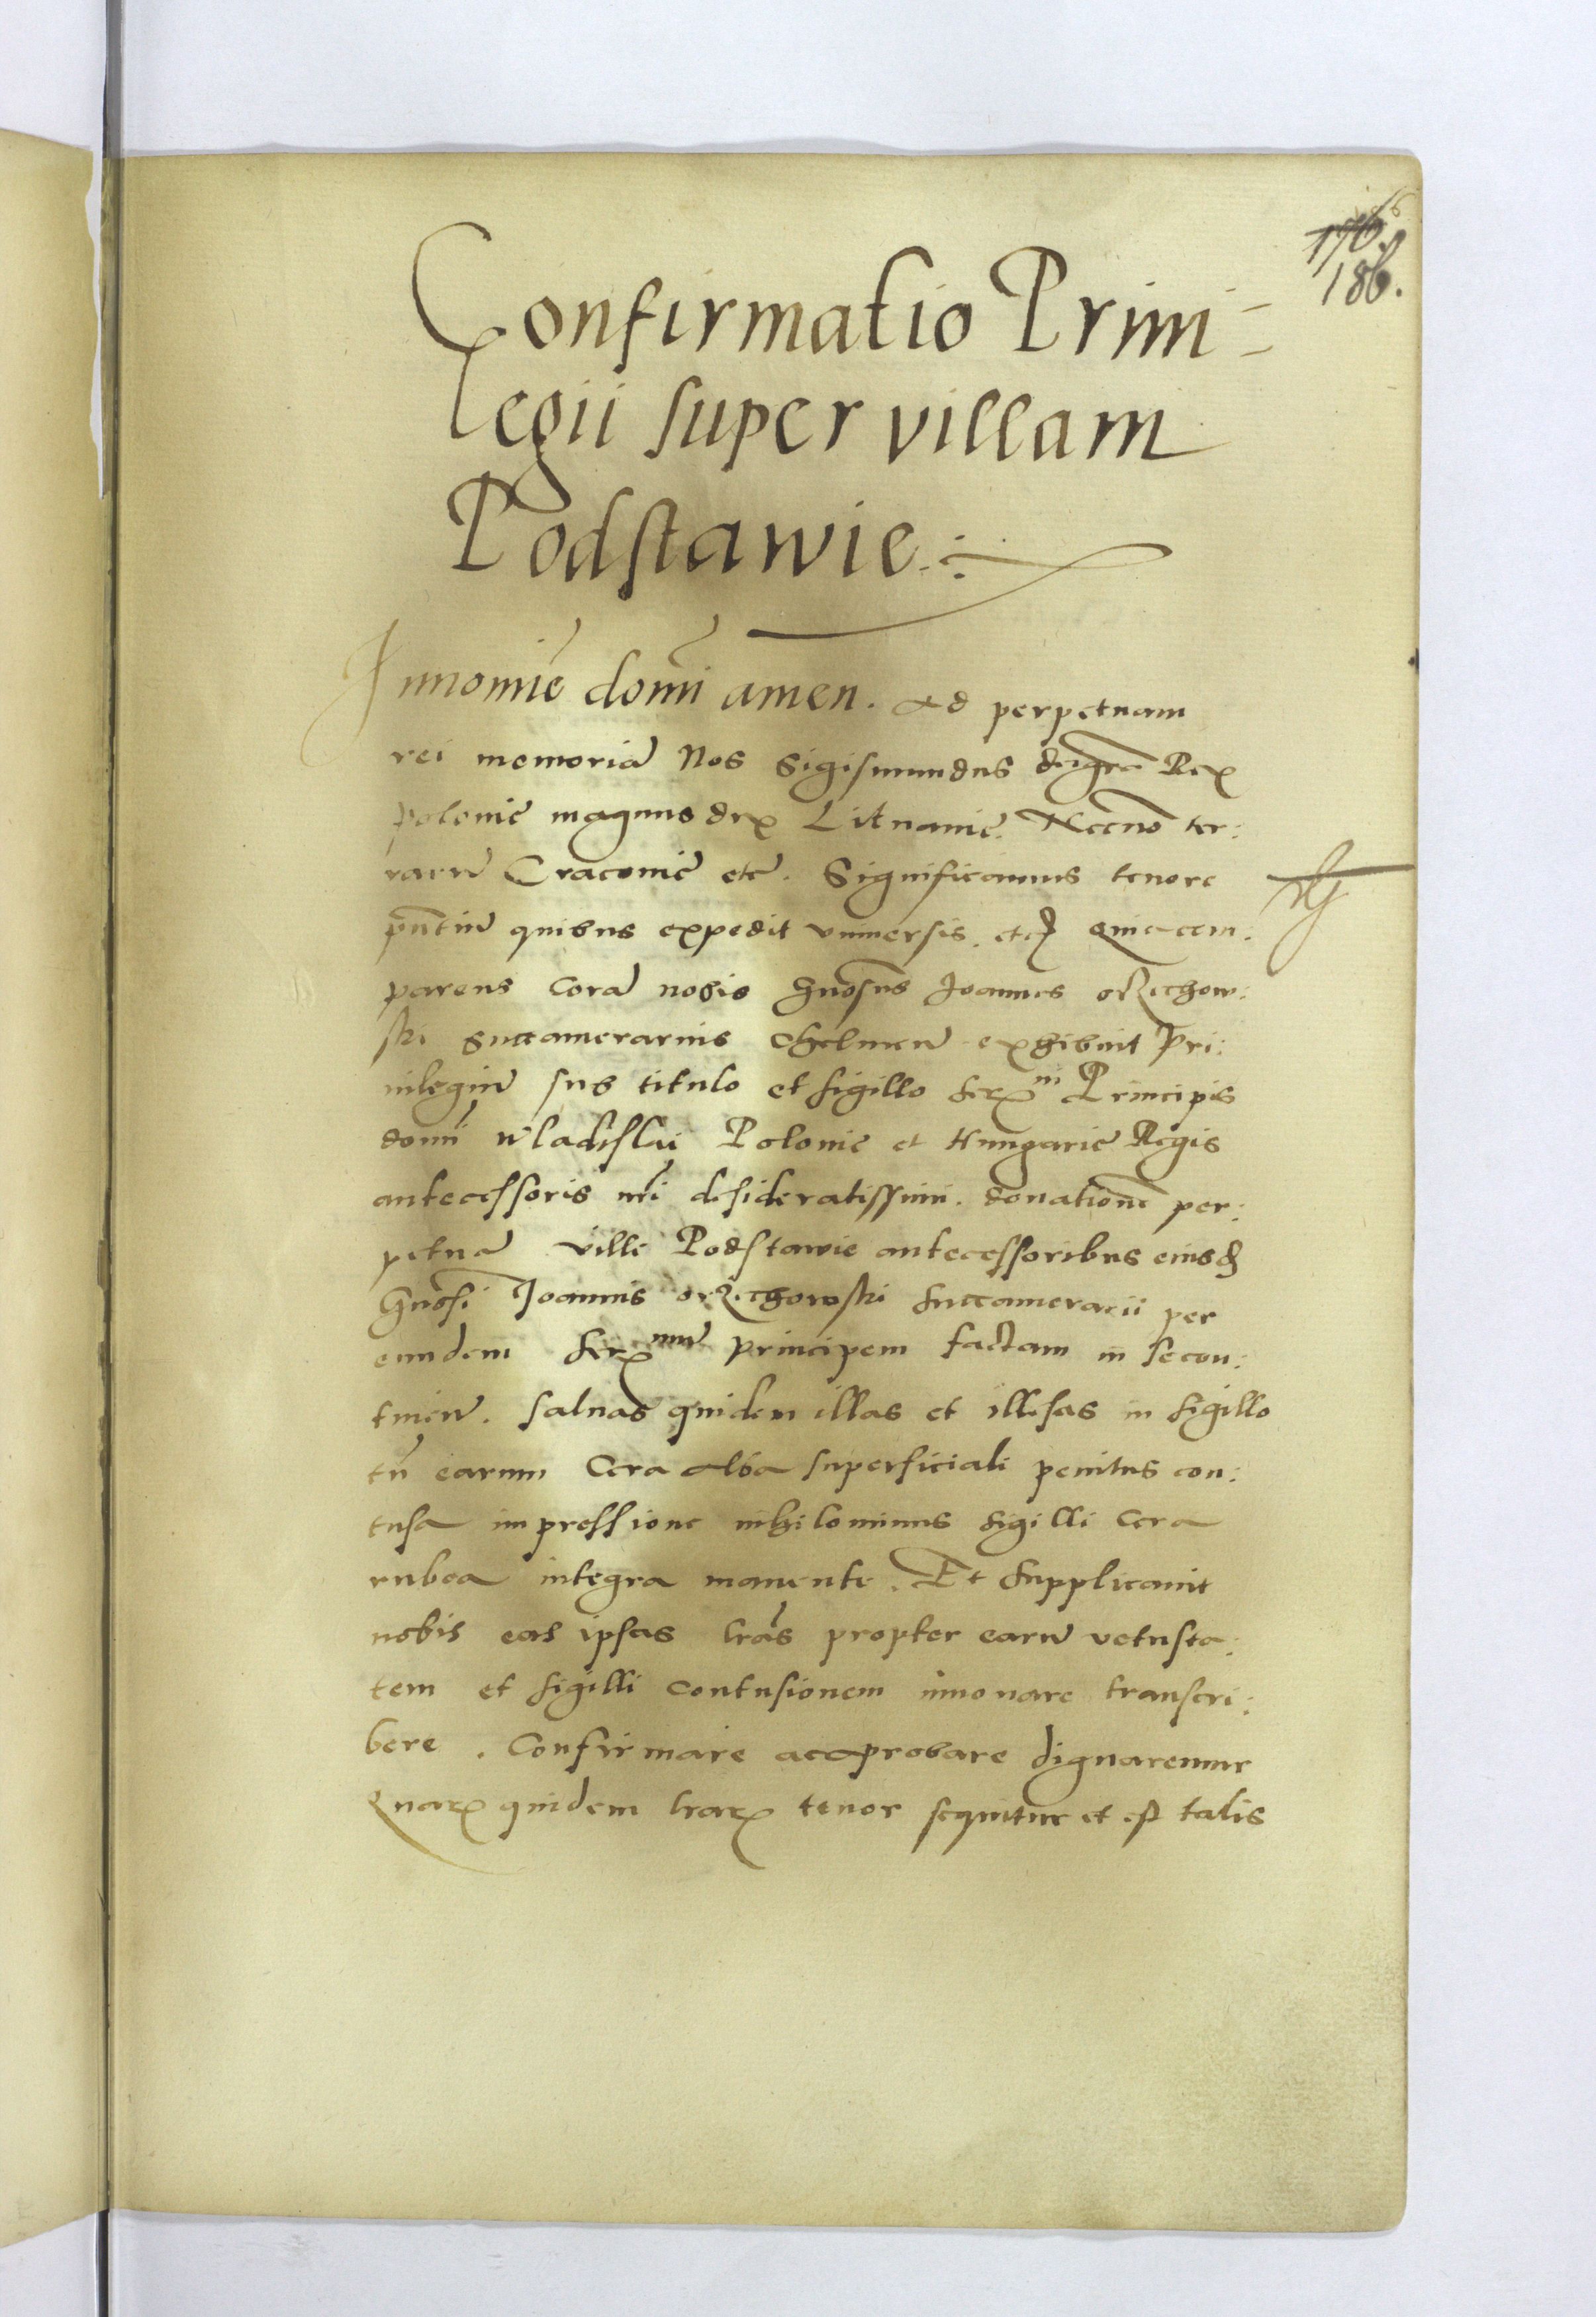 176.
186.
Confirmatio Priui=
legii super villam
Podstawie.
In nomine domini amen. Ad perpetuam
rei memoriā Nos Sigismundus dei grā Rex
polonie magnus dux Lituanie. Necnō ter:
rarū Cracouie etc. Significamus tenore
pn̄tiū quibus expedit vniuersis. etc. Quia com:
parens Corā nobis Gn̄osus Joannes orzechow:
ski Succamerarius Chelmen̄ exhibuit Pri:
uilegiū sub titulo et sigillo Ser.mi Principis
domini wladislai Polonie et Hungarie Regis
antecessoris nr̄i desideratissimi. donationē per:
petuā ville Podstawie antecessoribus eiusd
Gn̄osi Joannis orzechowski Succamerarii per
eundem Ser.mum principem factam in se con:
tinen̄. Saluas quidem illas et illesas in sigillo
tn̄ earum Cera alba superficiali penitus con:
tusa impressione nihilominus sigilli Cera
rubea integra manente. Et Supplicauit
nobis eas ipsas lrās propter earū vetusta:
tem et sigilli contusionem innouare transcri:
bere. Confirmare acaprobare dignaremur
Quar. quidem lrar. tenor sequitur et est talis